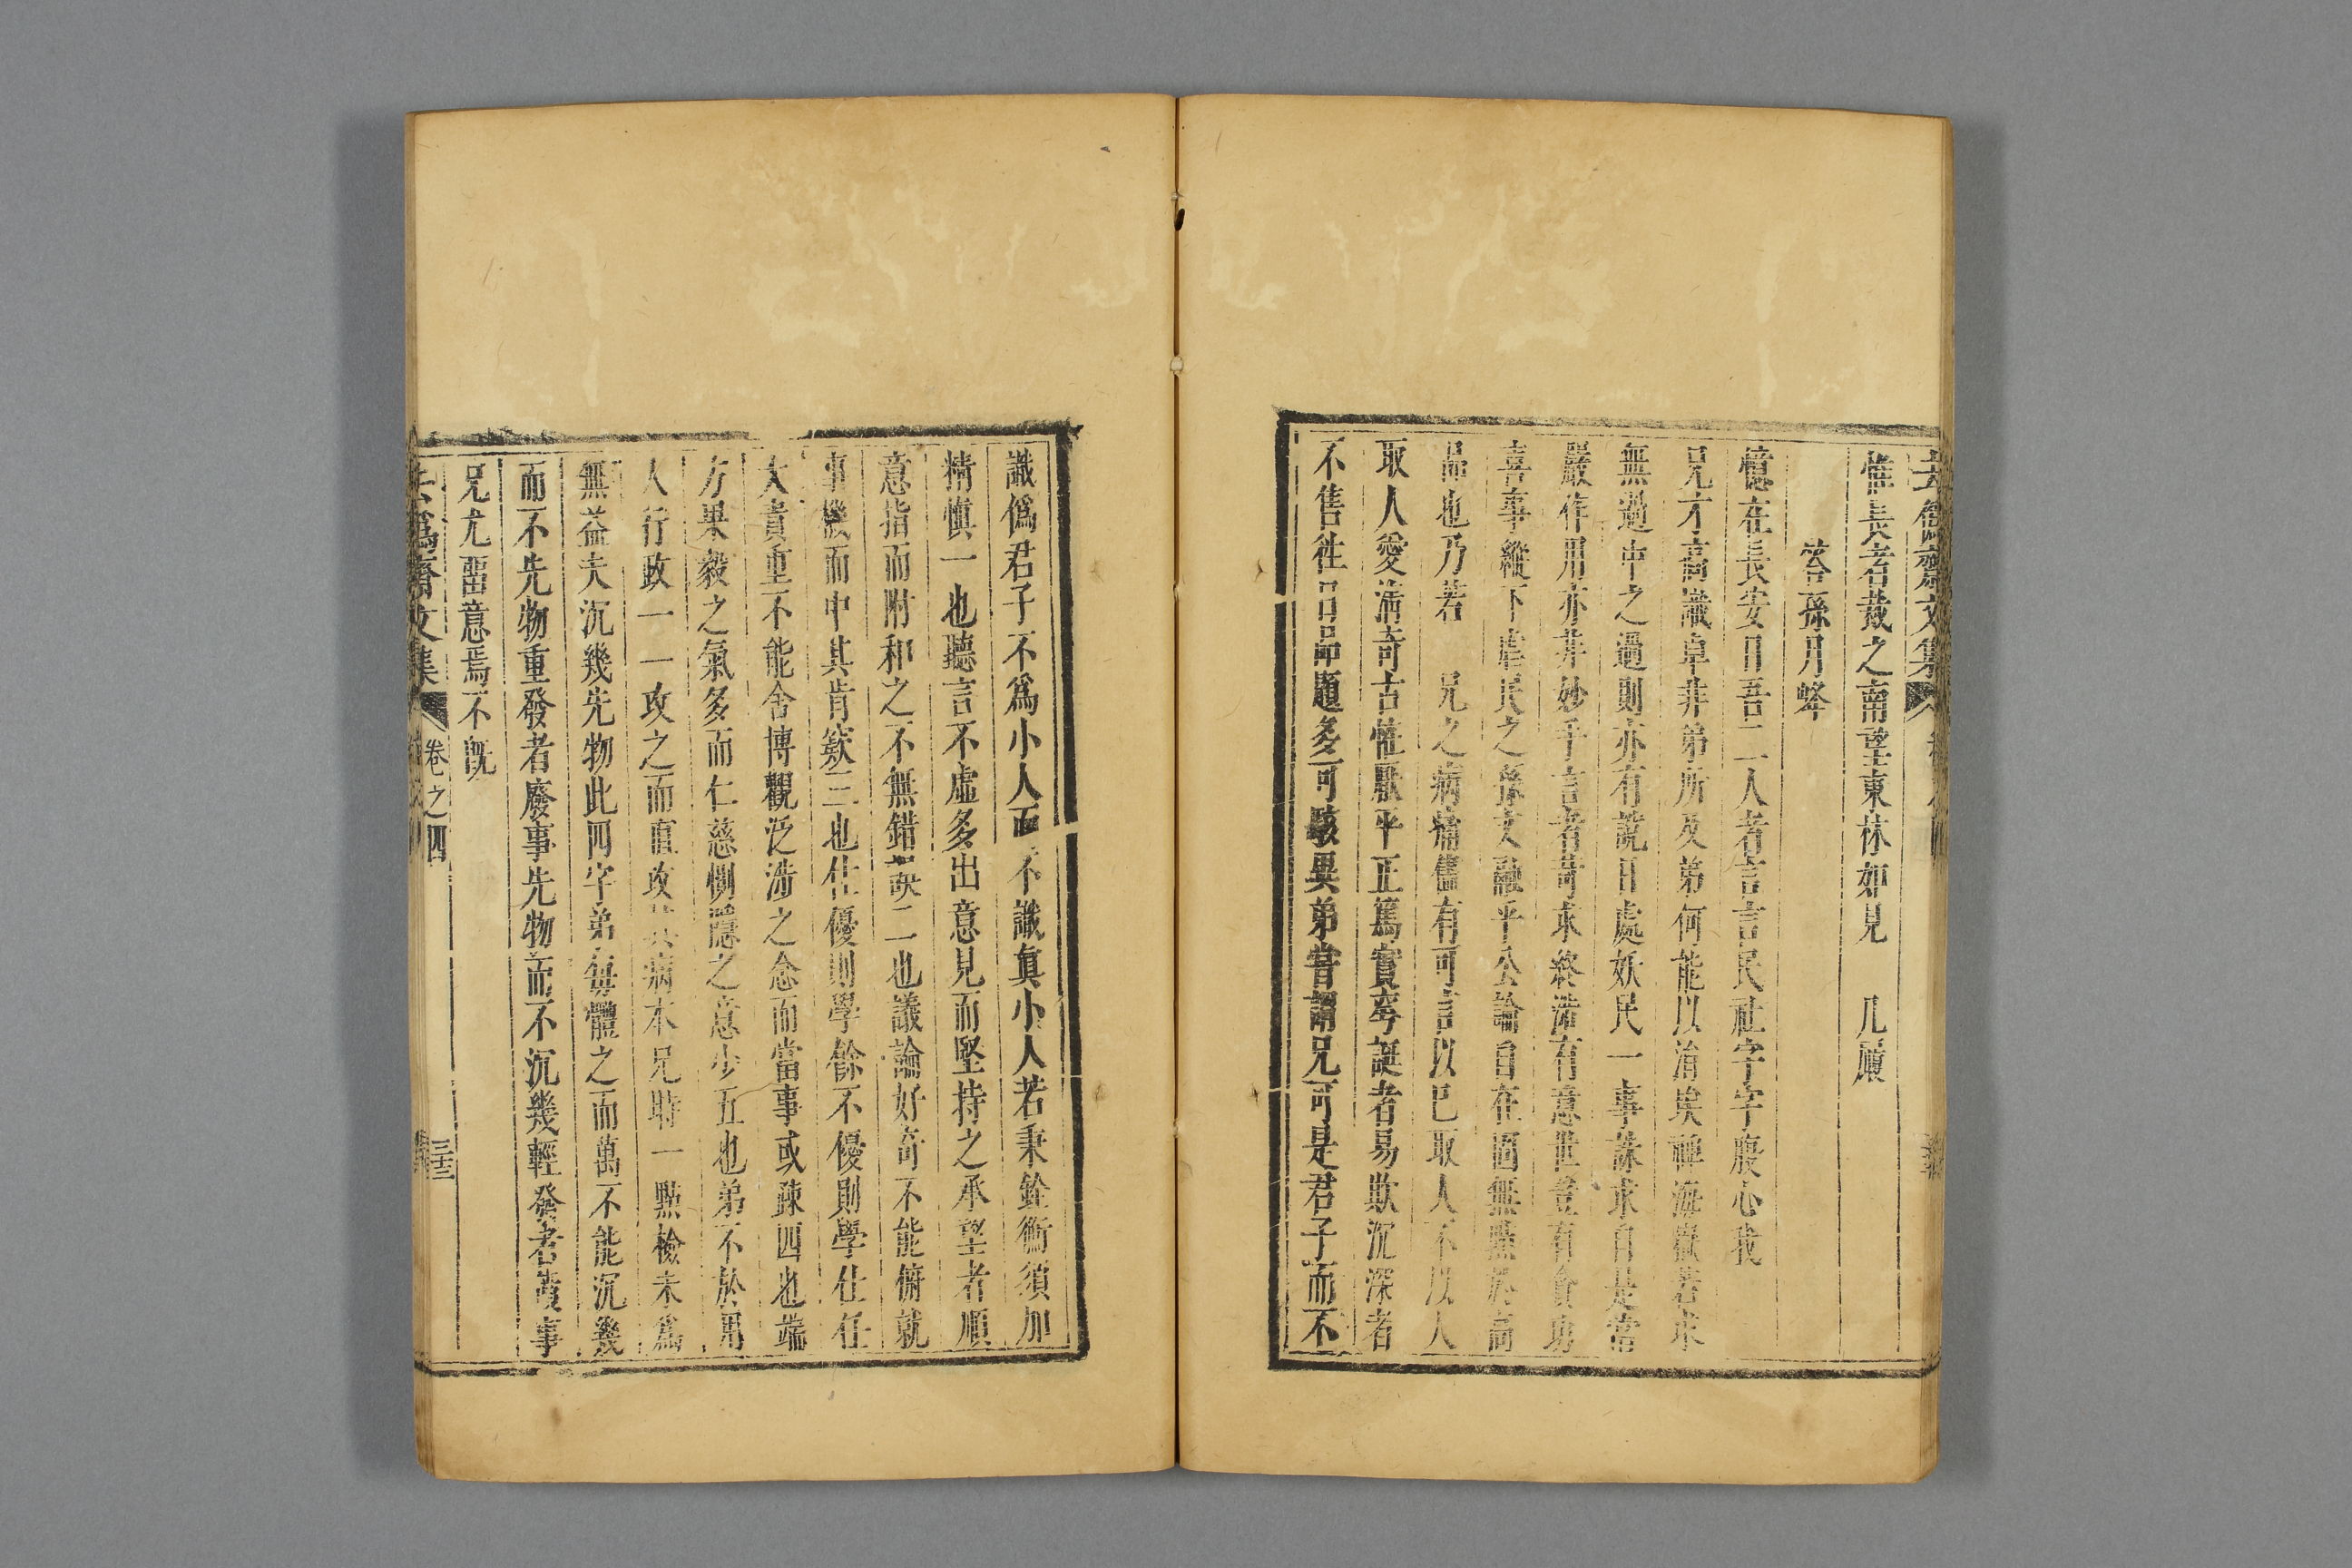 去僞齋文集
惟長者裁之南望東林如見　几履
答孫月峰
憶在長安日吾二人者言言民社字字腹心哉
兄才高識卓非弟所及弟何能以涓埃裨海嶽若求
無過中之過則亦有說日處妖民一事誅求自是當
嚴作用亦非妙手言者苛求終涉有意世豈有貪功
喜事縱下虐民之孫文融乎公論自在固無與於高
品也乃若　兄之病痛舊有可言以巳取人不以人
取人愛清奇古恠厭平正篤實夸誕者易欺沉深者
不售往日品題多可駭異弟嘗謂兄可是君子而不
識僞君子不爲小人而不識眞小人若秉銓衡須加
精愼一也聽言不虛多出意見而堅持之承望者順
意指而附和之不無錯誤二也議論好奇不能俯就
事機而中其肯綮三也仕優則學餘不優則學仕任
大責重不能舍博觀泛涉之念而當事或疎四也端
方果毅之氣多而仁慈惻隱之意少五也弟不於用
人行政一一攻之而直攻其病本兄時一點檢未爲
無益夫沉幾先物此四字弟每體之而萬不能沉幾
而不先物重發者廢事先物而不沉幾輕發者僨事
兄尤畱意焉不旣
去僞齋文集
卷之四
三十三